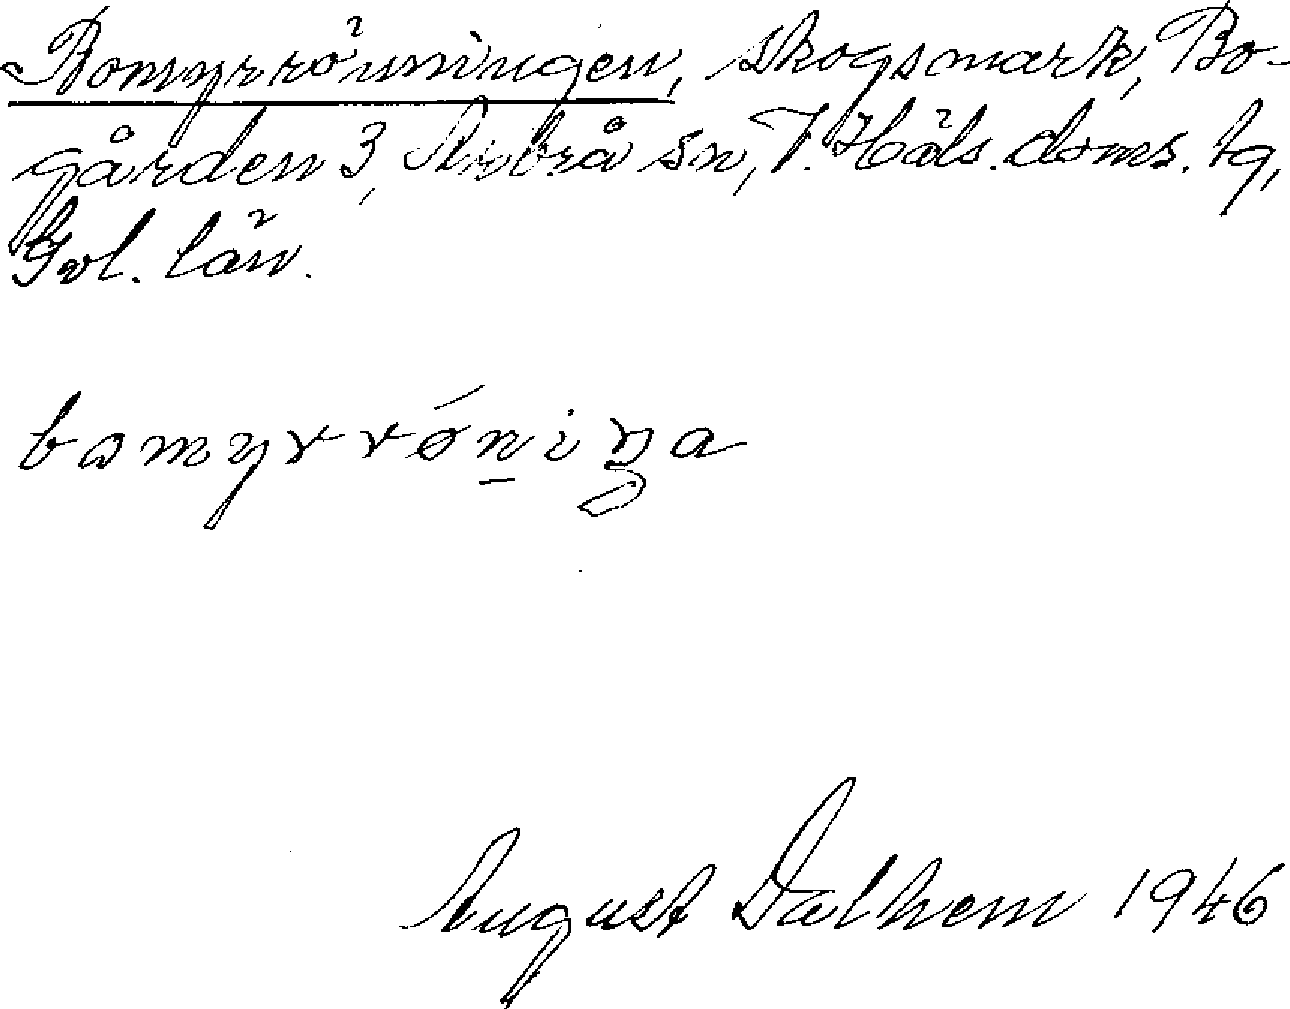 Bomyrröningen, skogsmark, Bo-
gården 3, Arbrå sn, V. Häls. doms. tg,
Gvl. län.
bomyrrǿniŋa
August Dalhem 1946